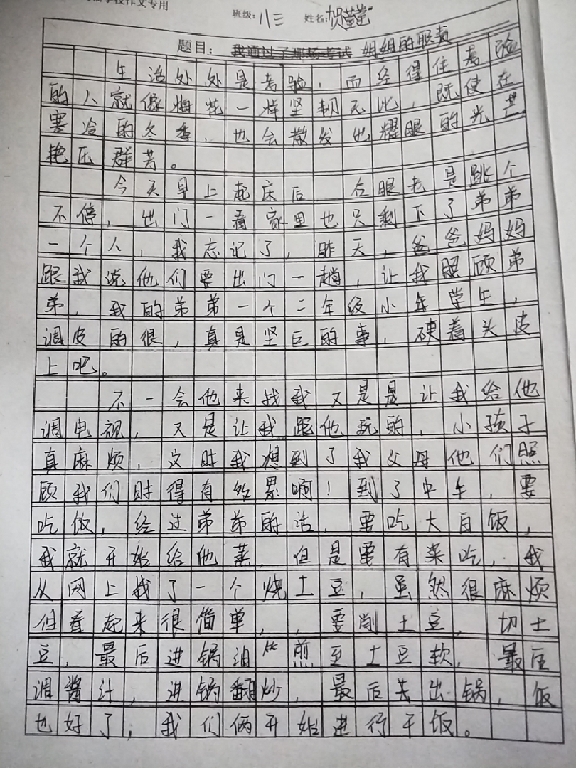 学校作文专用
班级：八三 姓名：
题目：我通过了现场考试 姐姐的职责
生活处处是考验，而经得住考验
的人就像梅花一样坚韧无比，既使在
寒冷的冬季，也会散发出耀眼的光芒
艳压群芳。
今天早上起床后 右眼老是跳个
不停，出门一看家里也只剩下了弟弟
一个人，我忘记了，昨天，爸爸妈妈
跟我说他们要出门一趟，让我照顾弟
弟，我的弟弟一个二年级小学生，
调皮的很，真是坚巨的事，硬着头皮
上吧。
不一会他来找我又是是让我给他
调电视，又是让我跟他玩的，小孩子
真麻烦，这时我想到了我父母他们照
顾我们时得有多累啊！到了中午，要
吃饭，经过弟弟的话，要吃大白饭，
我就开始给他菜，但是要有菜吃，我
从网上找了一个烧土豆，虽然很麻烦
但看起来很简单，要削土豆，切土
豆，最后进锅油煎至土豆软，最后
调酱汁，进锅翻炒，最后去出锅，饭
也好了，我们俩开始进行干饭。